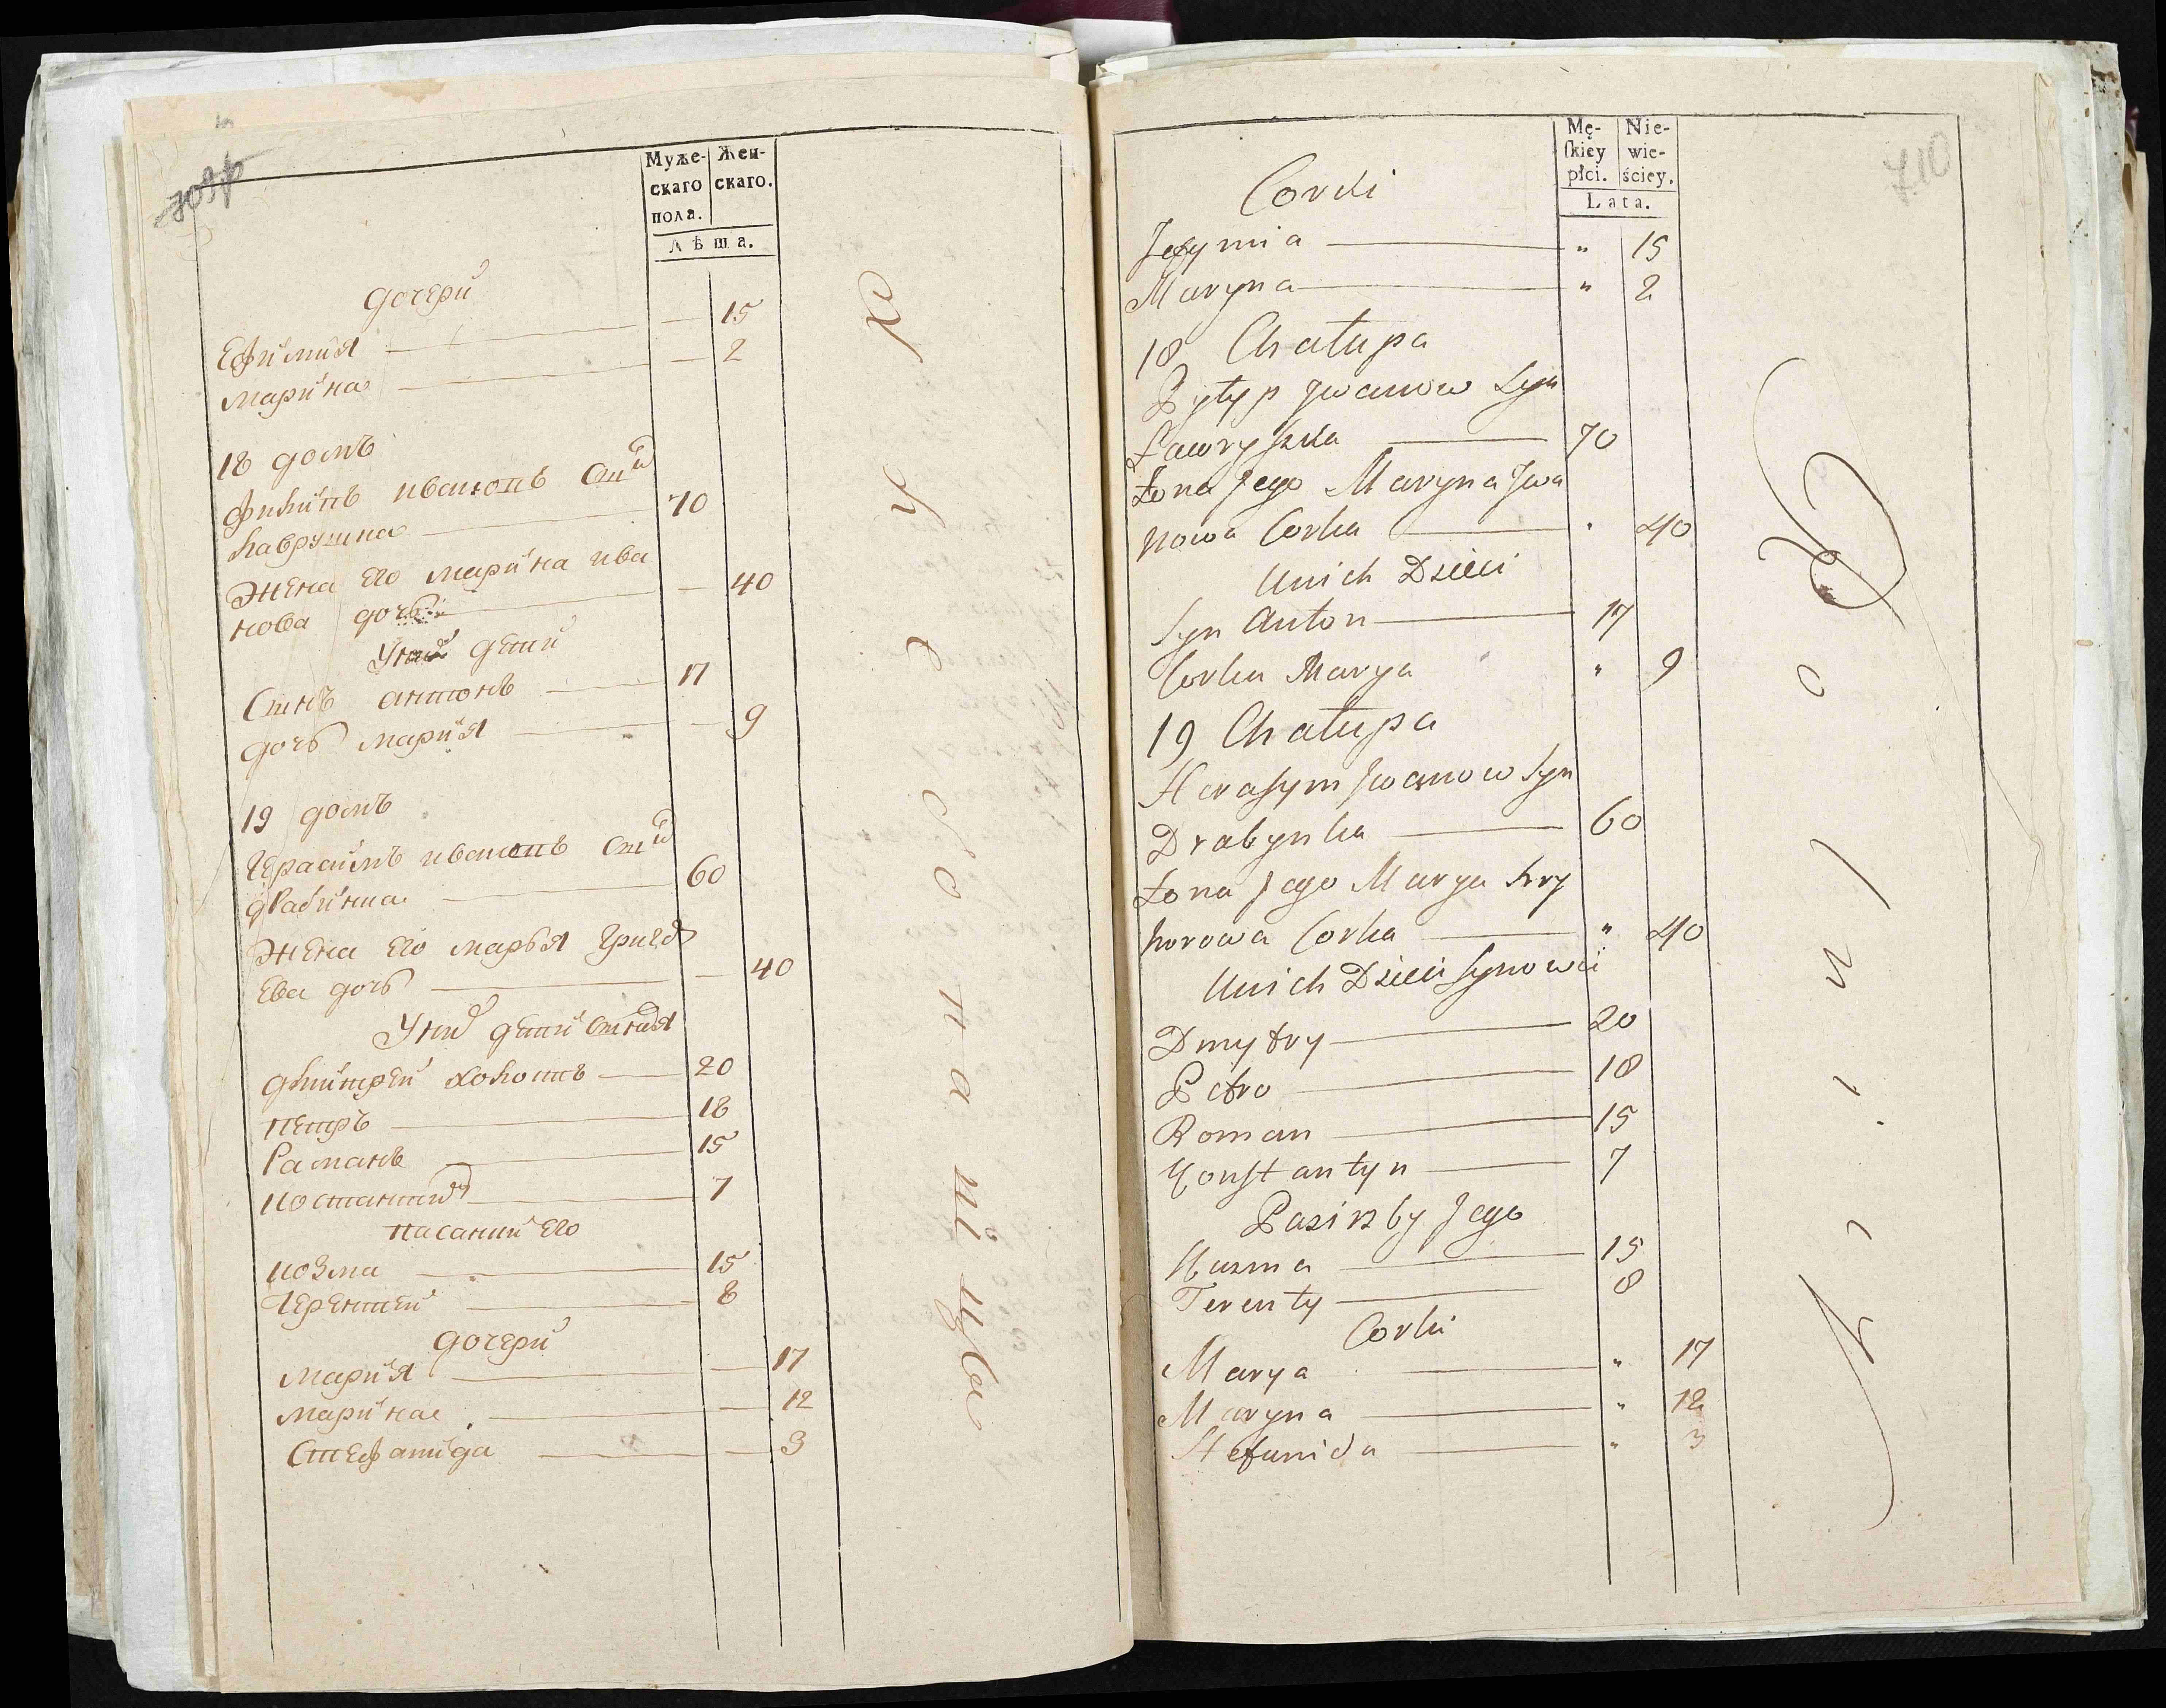 709об
Муже-
скаго
пола.
Жен-
скаго.
Лѣта.
дочери
Ефимия — 15
марина — 2
18 домъ
Филипъ ивановъ сынъ
Лаврушка 70
жена его марина ива
нова дочь — 40
У них дети
Сынъ антонъ 17
дочь мария — 9
19 домъ
Герасимъ ивановъ сынъ
драбинка 60
жена его марья григор
ева дочь — 40
У них дети сыновья
дмитрей холостъ 20
петръ 18
Раманъ 15
костантин 7
пасынки его
козма 15
Терентей 8
дочери
мария — 17
марина — 12
Стефанида — 3
710
Mę-
skiey
płci.
Nie-
wie-
ściey.
Lata.
Corki
Jefymia " 15
Maryna " 2
18 Chałupa
Pyłyp Jwanow Syn
Ławryszka 70
Żona Jego Maryna Jwa
nowa Corka " 40
Unich Dzieci
Syn Anton 17
Corka Marya " 9
19 Chałupa
Herasym Jwanow Syn
Drabynka 60
Żona Jego Marya Hry
horowa Corka " 40
Unich Dzieci Synowie
Dmytry 20
Petro 18
Roman 15
Konstantyn 7
Pasirzby Jego
Kuzma 15
Terenty 8
Corki
Marya " 17
Maryna " 12
Stefanida " 3